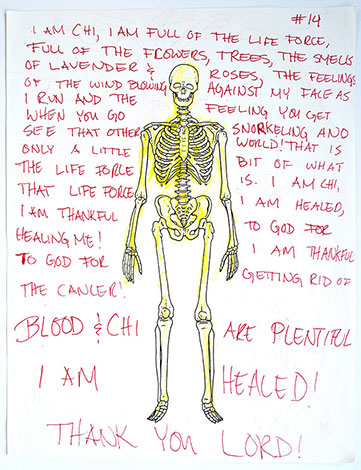 #14
I AM CHI, I AM FULL OF THE LIFE FORCE,
FULL OF THE FLOWERS, TREES, THE SMELLS
OF LAVENDER & ROSES, THE FEELINGS
OF THE WIND BLOWING AGAINST MY FACE AS
I RUN AND THE FEELING YOU GET
WHEN YOU GO SNORKELING AND
SEE THAT OTHER WORLD! THAT IS
ONLY A LITTLE BIT OF WHAT
THE LIFE FORCE IS. I AM CHI,
THAT LIFE FORCE I AM HEALED,
I AM THANKFUL TO GOD FOR
HEALING ME! I AM THANKFUL
TO GOD FOR GETTING RID OF
THE CANCER!
BLOOD & CHI ARE PLENTIFUL
I AM HEALED!
THANK YOU LORD!